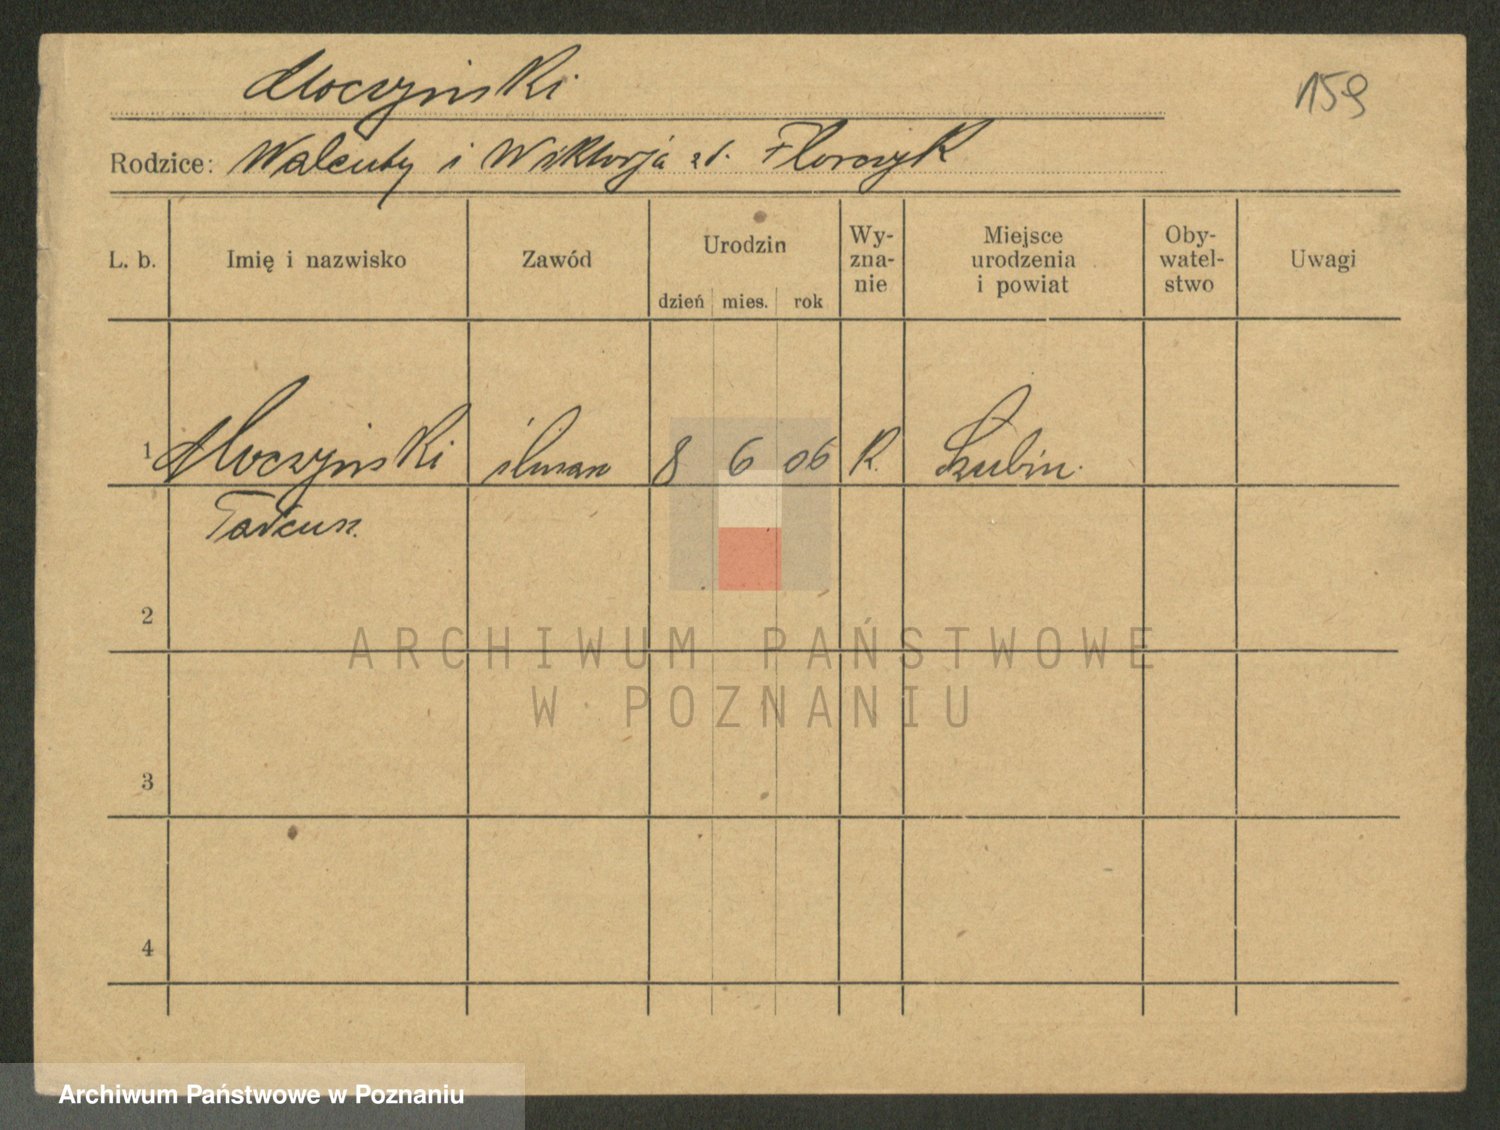 Moczyński
159
Rodzice: Walenty i Wiktorja zd. Florczyk
L. b. Imię i nazwisko Zawód Urodzin dzień mies. rok Wy-znanie Miejsce urodzenia i powiat Oby-watel-stwo Uwagi
1 Moczyński ślusarz 8 6 06 R. Szubin.
Tadeusz.
2
ARCHIWUM PAŃSTWOWE
W POZNANIU
3
4
Archiwum Państwowe w Poznaniu